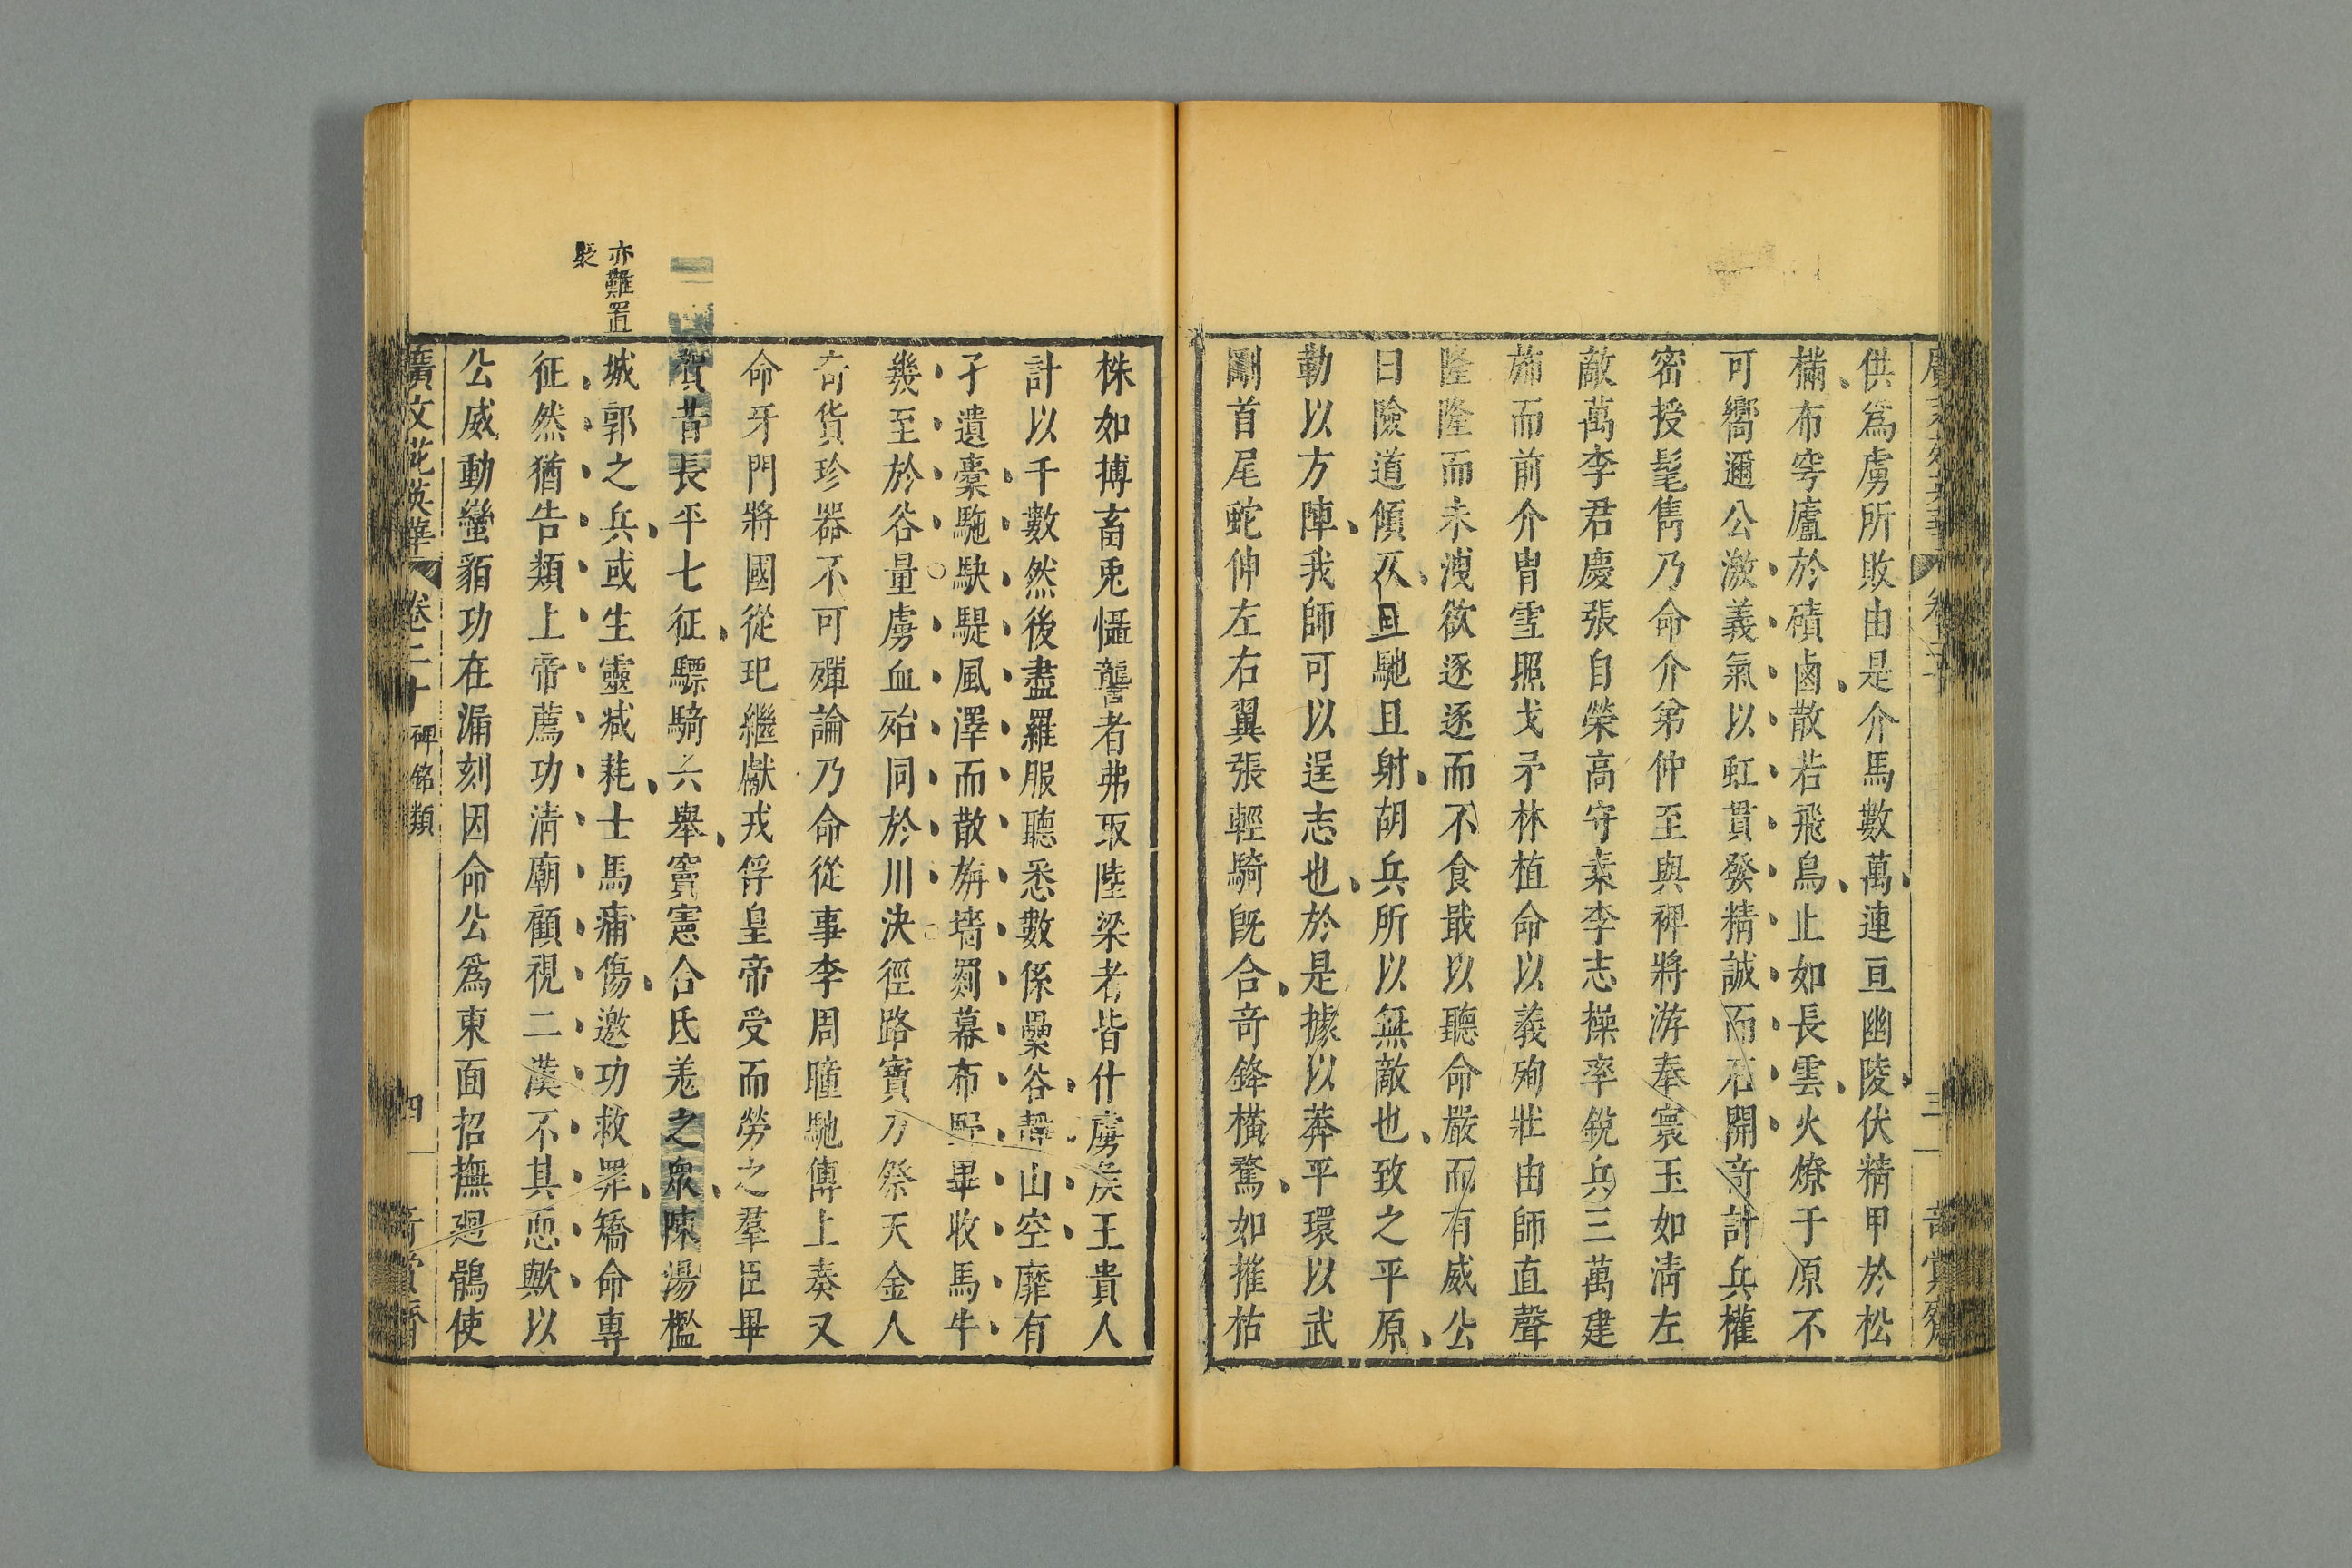 供為虜所敗由是介馬數萬連亘幽陵伏精甲於松
樠布穹廬於磧鹵散若飛鳥止如長雲火燎于原不
可嚮邇公激義氣以虹貫發精誠而石開奇計兵權
密授髦雋乃命介弟仲至與裨將游奉寰玉如清左
敵萬李君慶張自榮高守素李志操率銳兵三萬建
斾而前介冑雪照戈矛林植命以義殉壯由師直聲
隆隆而未洩欲逐逐而不食戢以聽命嚴而有威公
曰險道傾仄且馳且射胡兵所以無敵也致之平原
勒以方陣我師可以逞志也於是據以莽平環以武
剛首尾蛇伸左右翼張輕騎旣合奇鋒橫騖如摧枯
株如搏畜兎懾讋者弗取陸梁者皆什虜矦王貴人
計以千數然後盡羅服聽悉數係纍谷靜山空靡有
孑遺槖駞駃騠風澤而散旃墻罽幕布野畢收馬牛
幾至於谷量虜血殆同於川決徑路寶刀祭天金人
奇貨珍器不可殫論乃命從事李周瞳馳傳上奏又
命牙門將國從玘繼獻戎俘皇帝受而勞之羣臣畢
賀昔長平七征驃騎六舉竇憲合氐羌之眾陳湯檻
亦難置
褎
城郭之兵或生靈減耗士馬痡傷邀功救罪矯命專
征然猶告類上帝薦功清廟顧視二漢不其恧歟以
公威動蠻貊功在漏刻因命公為東面招撫廻鶻使
廣文苑英華 卷二十 碑銘類 四